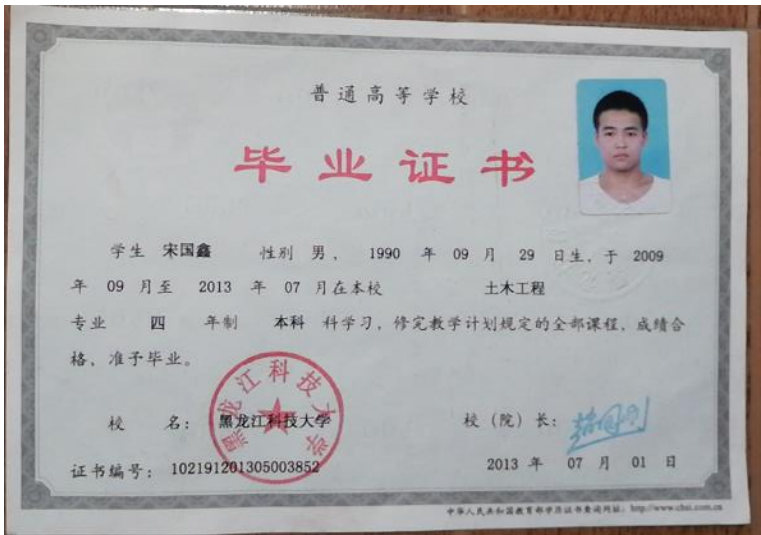 普通高等学校
毕业证书
学生 宋国鑫 性别 男， 1990 年 09 月 29 日生，于 2009
年 09 月至 2013 年 07 月在本校 土木工程
专业 四 年制 本科 科学习，修完教学计划规定的全部课程，成绩合
格，准予毕业。
黑龙江科技大学
校 名： 黑龙江科技大学 校（院）长：
证书编号： 102191201305003852 2013 年 07 月 01 日
中华人民共和国教育部学历证书查询网址：http://www.chsi.com.cn